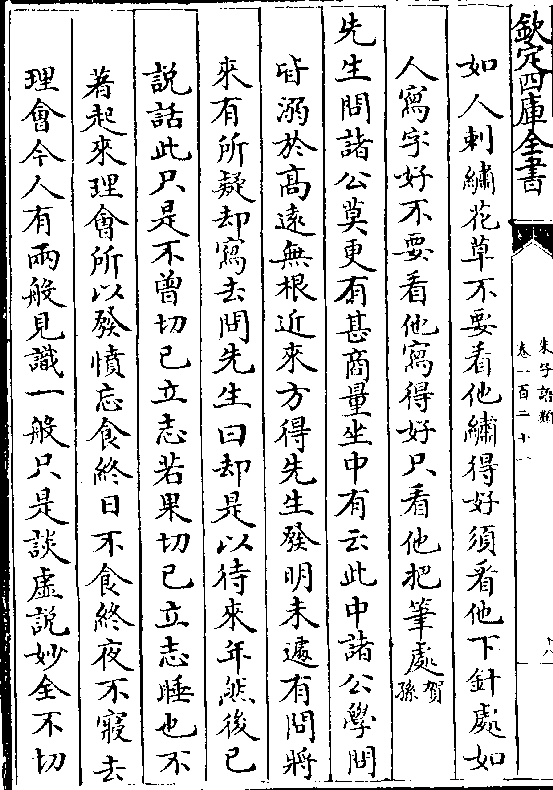 欽定四庫全書
朱子語類
卷一百二十一
如人刺繡花草不要看他繡得好須看他下針處如
人寫字好不要看他寫得好只看他把筆處賀孫
先生問諸公莫更有甚商量坐中有云此中諸公學問
皆溺於高遠無根近來方得先生發明未遽有問將
來有所疑却寫去問先生曰却是以待來年然後已
説話此只是不曾切己立志若果切己立志睡也不
著起來理會所以發憤忘食終日不食終夜不寢去
理會今人有兩般見識一般只是談虚説妙全不切